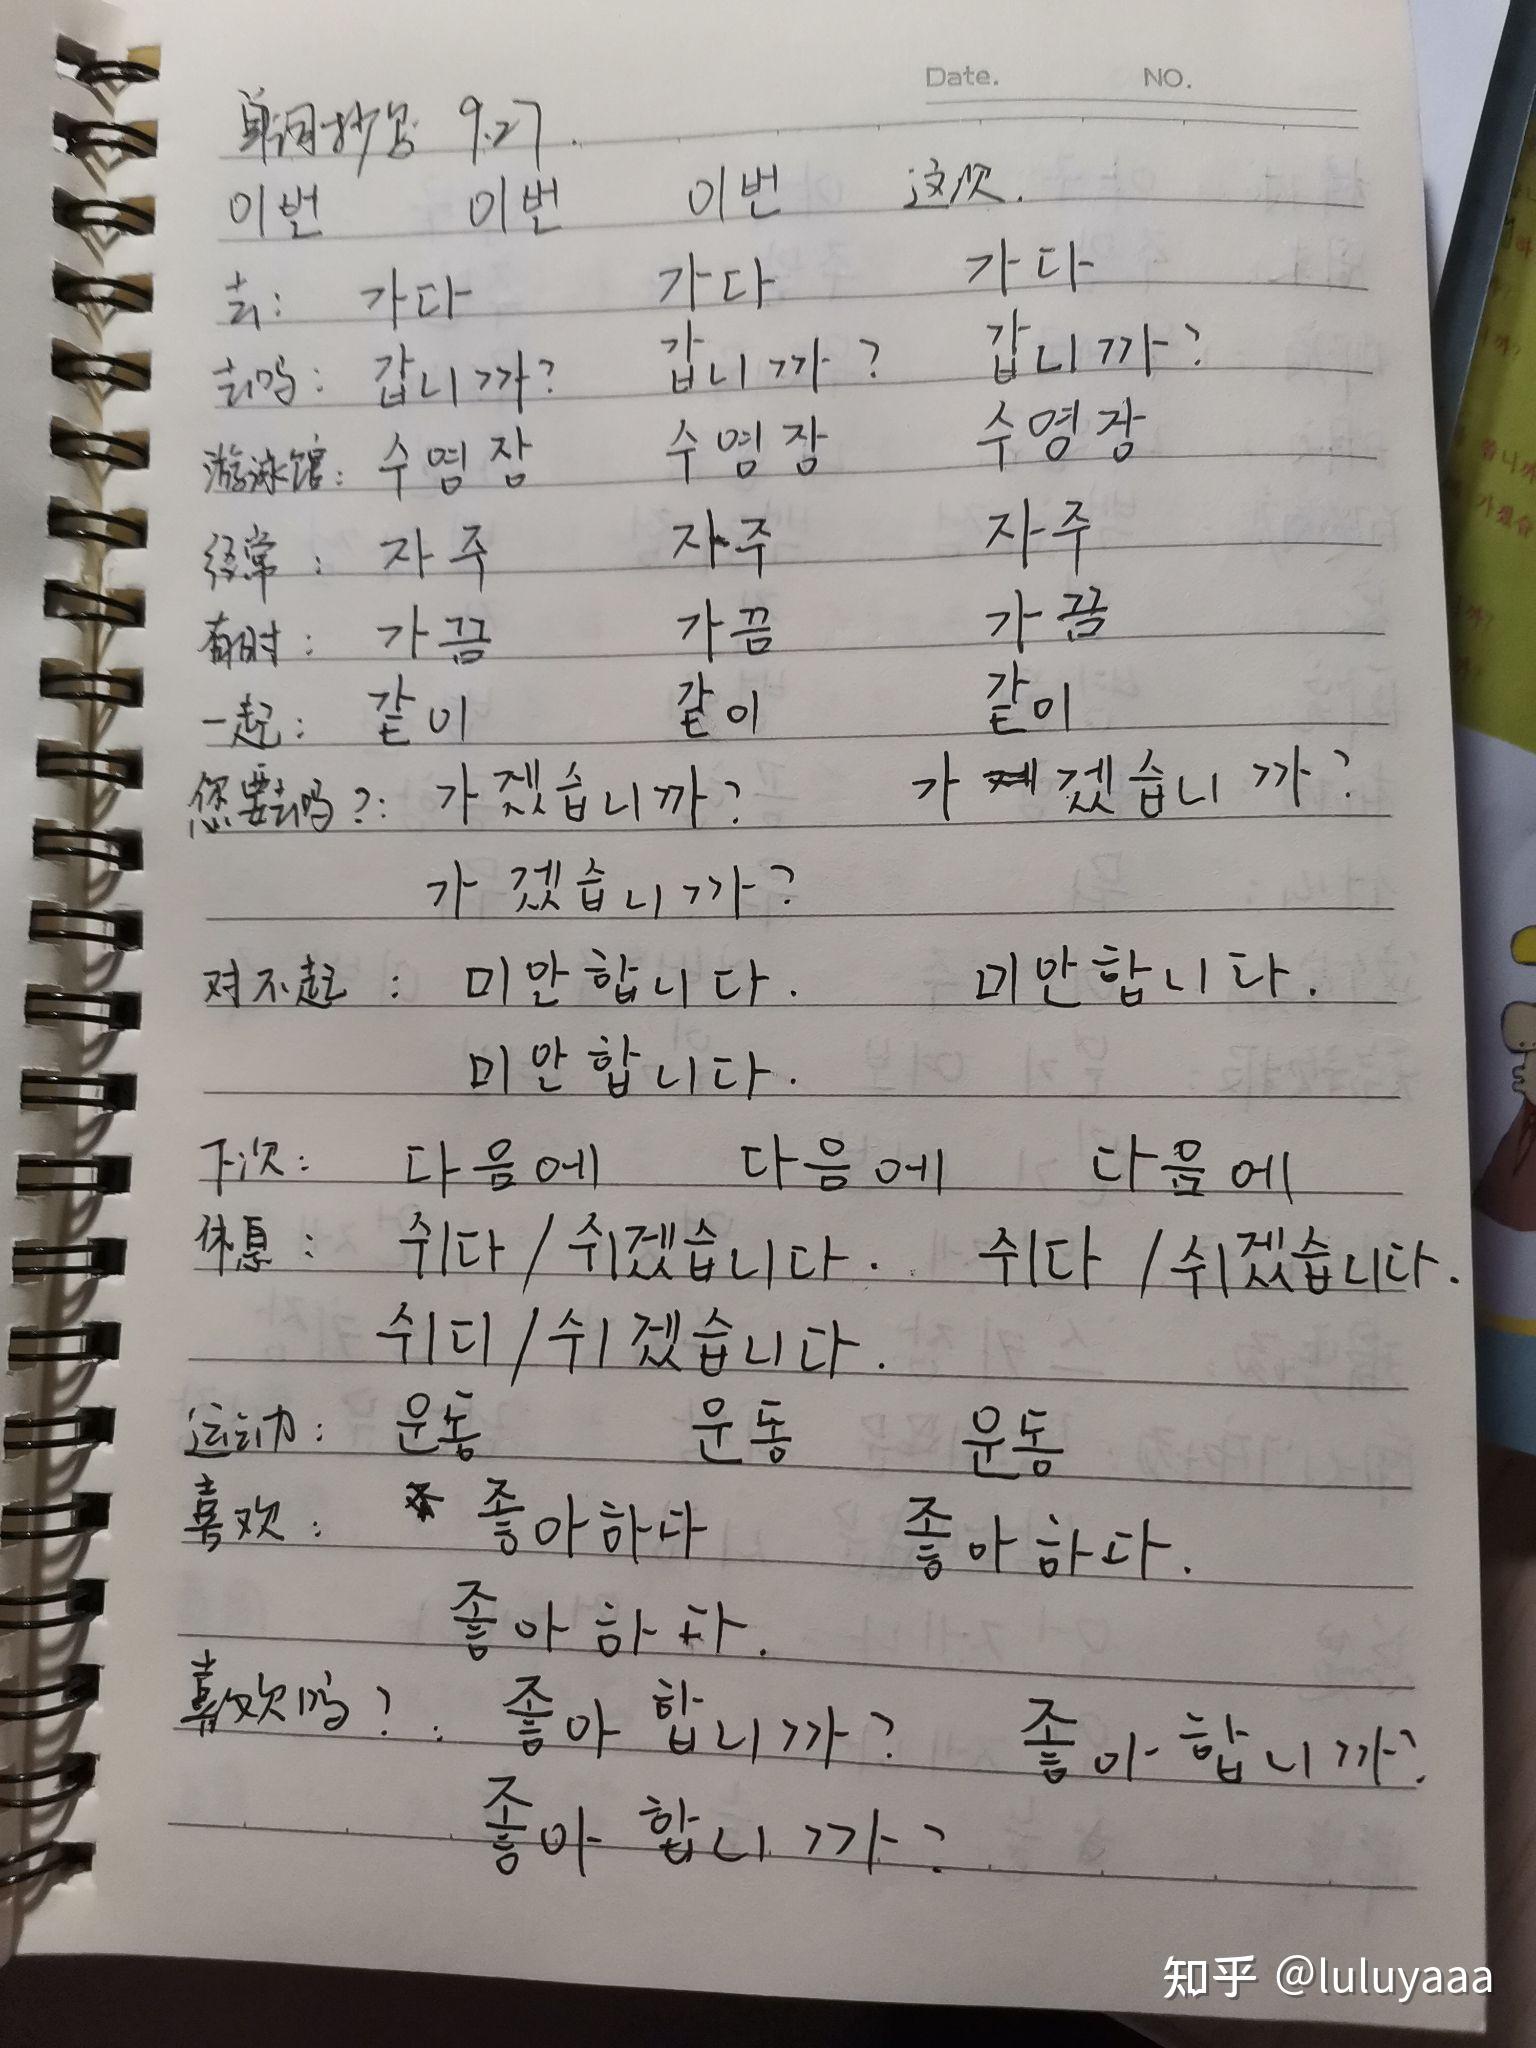 Date. NO.
单词抄写 9.27.
이번 이번 이번 这次.
去: 가다 가다 가다
去吗: 갑니까? 갑니까? 갑니까?
游泳馆: 수영장 수영장 수영장
经常: 자주 자주 자주
有时: 가끔 가끔 가끔
一起: 같이 같이 같이
您要去吗?: 가겠습니까? 가겠습니까?
가겠습니까?
对不起: 미안합니다. 미안합니다.
미안합니다.
下次: 다음에 다음에 다음에
休息: 쉬다/쉬겠습니다. 쉬다/쉬겠습니다.
쉬디/쉬겠습니다.
运动: 운동 운동 운동
喜欢: 좋아하다 좋아하다.
좋아하다.
喜欢吗?: 좋아합니까? 좋아합니까?
좋아합니까?
知乎 @luluyaaa